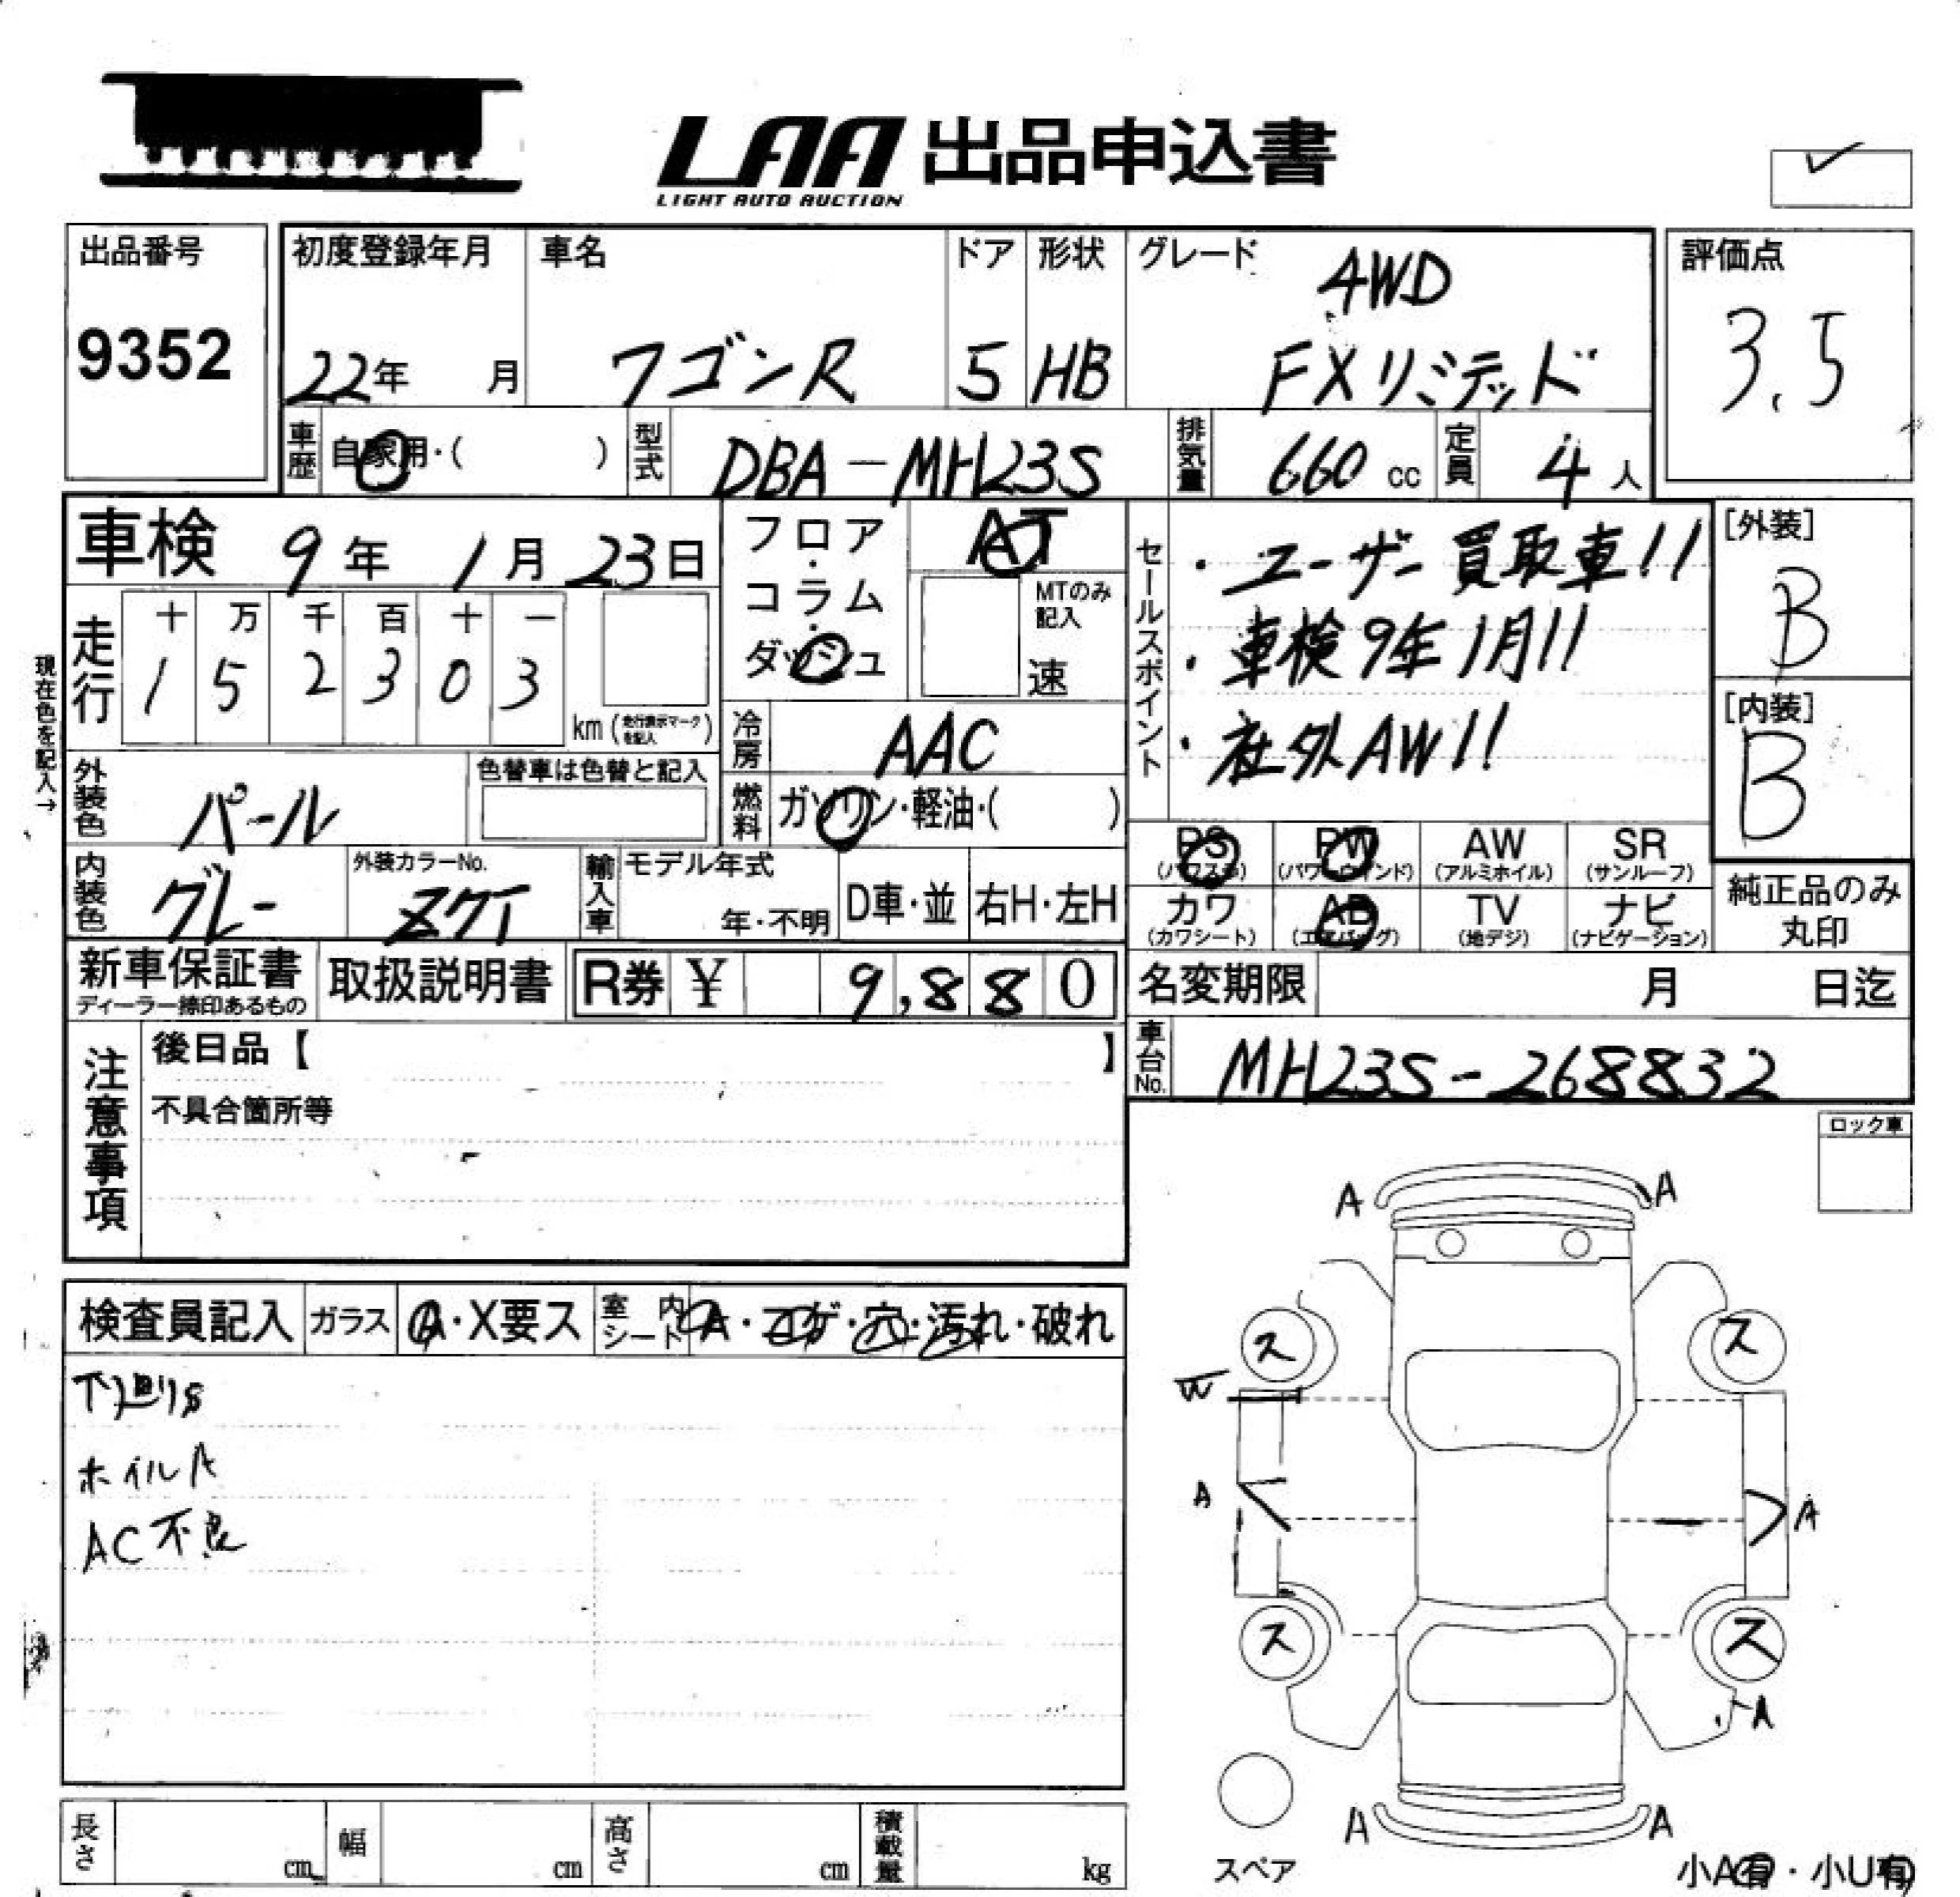 LAA 出品申込書
LIGHT AUTO AUCTION
出品番号
9352
初度登録年月
22年 月
車名
ワゴンR
ドア
5
形状
HB
グレード
4WD
FXリミテッド
評価点
3.5
車歴 自家用・( )
型式 DBA-MH23S
排気量 660 cc
定員 4 人
車検 9年 1月 23日
フロア・コラム・ダッシュ
AT
MTのみ記入
速
セールスポイント
・ユーザー買取車!!
・車検9年1月!!
・社外AW!!
[外装]
B
[内装]
B
現在色を記入→
走行
十 万 千 百 十 一
1 5 2 3 0 3
km (走行表示マークを記入)
冷房 AAC
外装色 パール
色替車は色替と記入
燃料 ガソリン・軽油・( )
内装色 グレー
外装カラーNo.
Z7T
輸入車 モデル年式
年・不明
D車・並
右H・左H
PS (パワステ)
PW (パワーウインド)
AW (アルミホイル)
SR (サンルーフ)
カワ (カワシート)
AB (エアバッグ)
TV (地デジ)
ナビ (ナビゲーション)
純正品のみ
丸印
新車保証書
ディーラー捺印あるもの
取扱説明書
R券 ¥ 9,880
名変期限 月 日迄
車台No. MH23S-268832
注意事項
後日品【 】
不具合箇所等
ロック車
検査員記入
ガラス A・X要ス
室内シート A・コゲ・穴・汚れ・破れ
下廻りS
ホイルA
AC不良
A A
ス ス
W
A A
ス ス
A
A A
スペア
小A有・小U有
長さ cm
幅 cm
高さ cm
積載量 kg